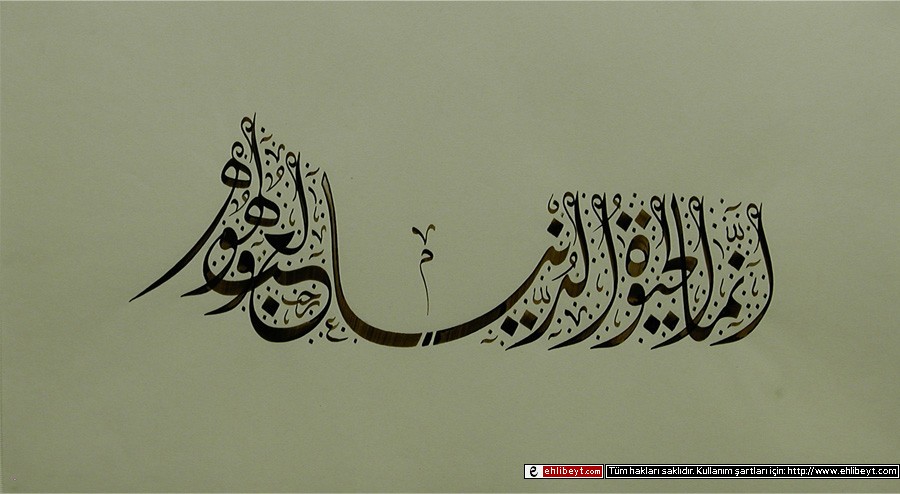 انما الحيوة الدنيا لعب ولهو
ehlibeyt.com Tüm hakları saklıdır. Kullanım şartları için: http://www.ehlibeyt.com